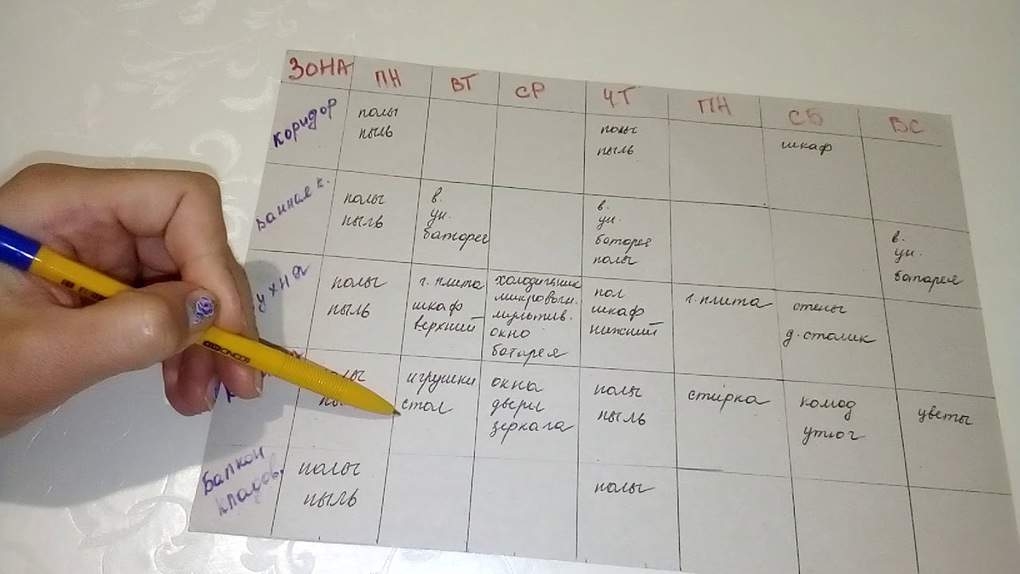 ЗОНА ПН ВТ СР ЧТ ПН СБ ВС
коридор
полы
пыль
полы
пыль
шкаф
Ванная к.
полы
пыль
в.
ун.
батарея
в.
ун.
батарея
полы
в.
ун.
батарея
ухня
полы
пыль
г. плита
шкаф
верхний
холодильник
микроволн.
мультив.
окно
батарея
пол
шкаф
нижний
г. плита
стены
д. столик
полы
игрушки
стол
окна
двери
зеркала
полы
пыль
стирка
комод
утюг
цветы
Балкон
кладов.
полы
пыль
полы